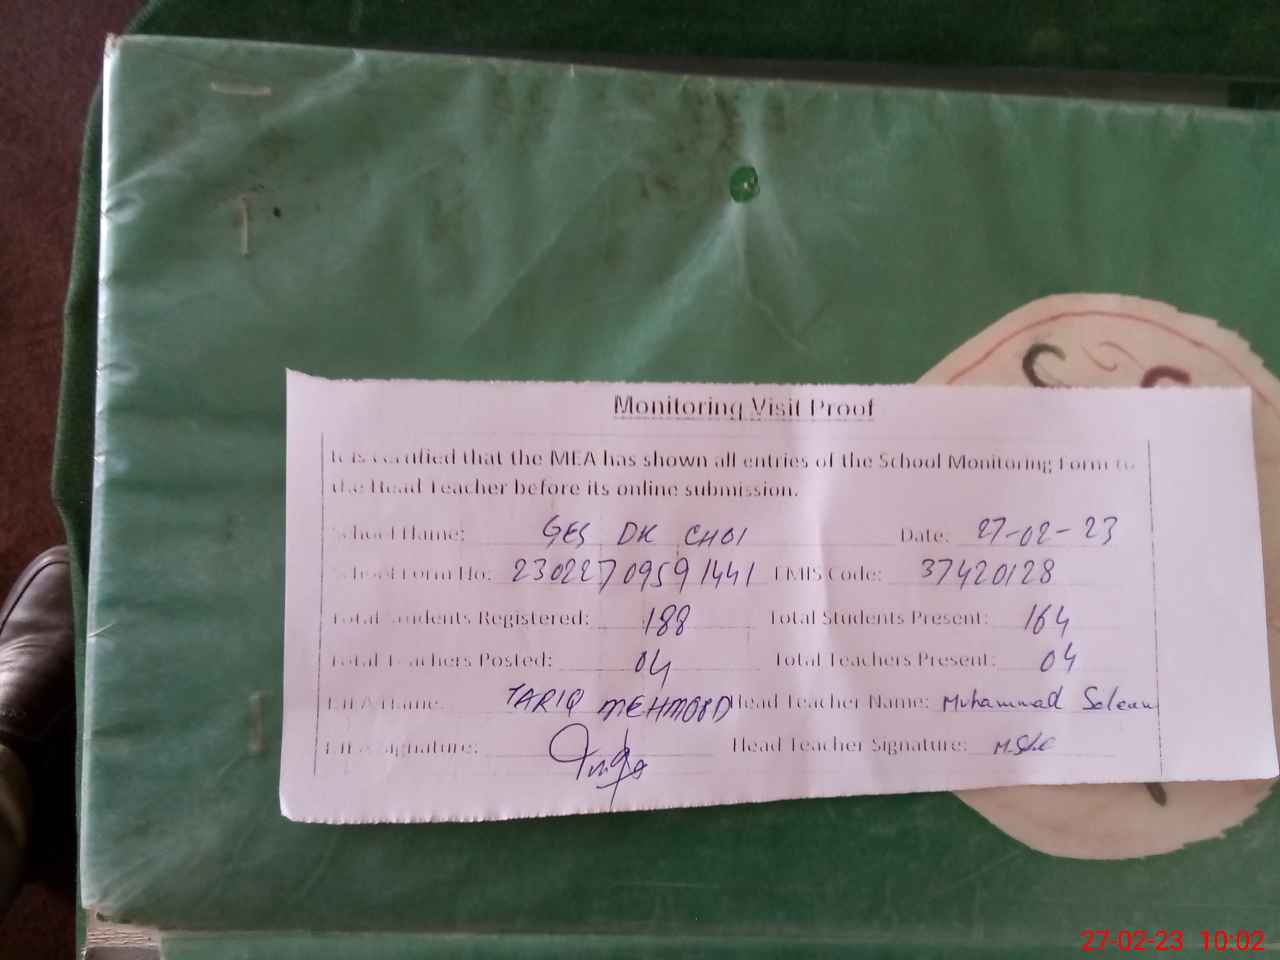 Monitoring Visit Proof
It is certified that the MEA has shown all entries of the School Monitoring Form to
the Head Teacher before its online submission.
School Name: GES DK CHOI Date: 27-02-23
School Form No: 23022709591441 EMIS Code: 37420128
Total Students Registered: 188 Total Students Present: 164
Total Teachers Posted: 04 Total Teachers Present: 04
MEA Name: TARIQ MEHMOOD Head Teacher Name: Muhammad
MEA Signature: Head Teacher Signature:
27-02-23 10:02